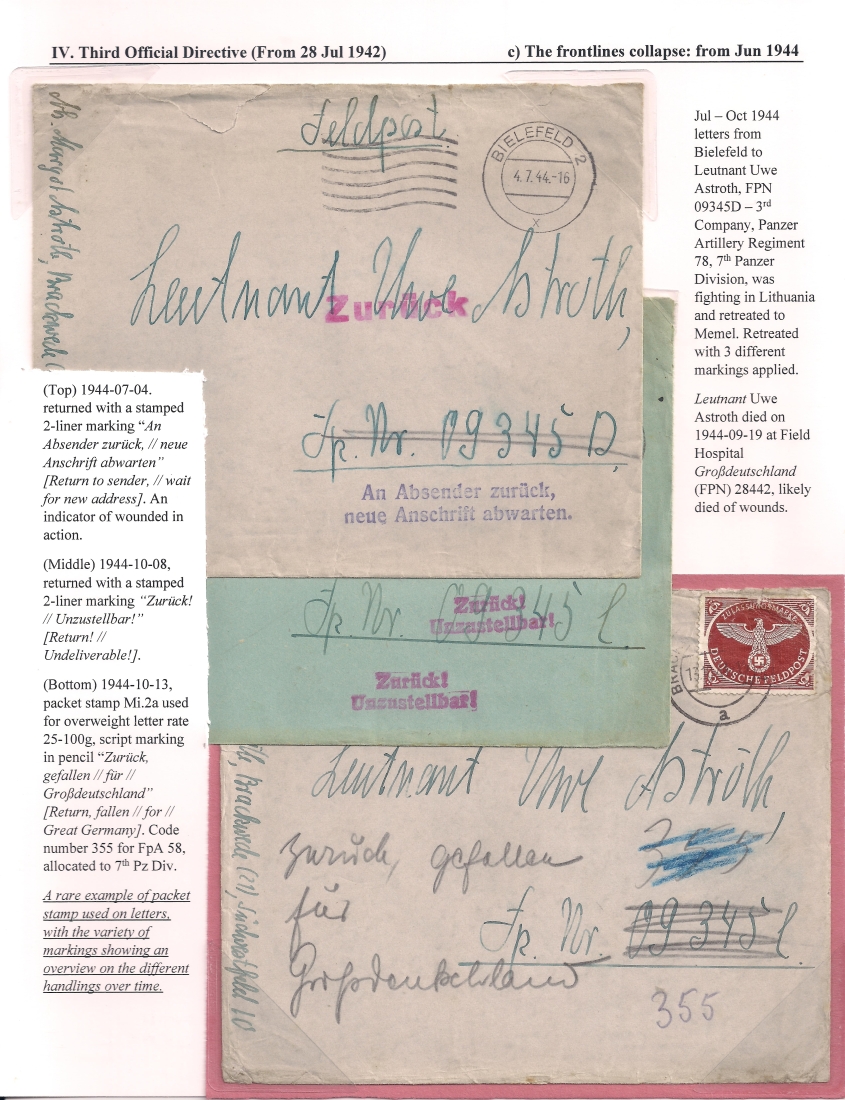 IV. Third Official Directive (From 28 Jul 1942)
c) The frontlines collapse: from Jun 1944
Jul – Oct 1944
letters from
Bielefeld to
Leutnant Uwe
Astroth, FPN
09345D – 3rd
Company, Panzer
Artillery Regiment
78, 7th Panzer
Division, was
fighting in Lithuania
and retreated to
Memel. Retreated
with 3 different
markings applied.
Leutnant Uwe
Astroth died on
1944-09-19 at Field
Hospital
Großdeutschland
(FPN) 28442, likely
died of wounds.
(Top) 1944-07-04.
returned with a stamped
2-liner marking “An
Absender zurück, // neue
Anschrift abwarten”
[Return to sender, // wait
for new address]. An
indicator of wounded in
action.
(Middle) 1944-10-08,
returned with a stamped
2-liner marking “Zurück!
// Unzustellbar!”
[Return! //
Undeliverable!].
(Bottom) 1944-10-13,
packet stamp Mi.2a used
for overweight letter rate
25-100g, script marking
in pencil “Zurück,
gefallen // für //
Großdeutschland”
[Return, fallen // for //
Great Germany]. Code
number 355 for FpA 58,
allocated to 7th Pz Div.
A rare example of packet
stamp used on letters,
with the variety of
markings showing an
overview on the different
handlings over time.
Feldpost
BIELEFELD 2
4.7.44.-16
x
Abs. Margot Astroth, Brackwede (
Leutnant Uwe Astroth,
Zurück
Fp. Nr. 09345 D,
An Absender zurück,
neue Anschrift abwarten.
Fp. Nr. 09345 C.
Zurück!
Unzustellbar!
Zurück!
Unzustellbar!
ZULASSUNGSMARKE
DEUTSCHE FELDPOST
a
Brackwede (21),
Leutnant Uwe Astroth
355
Zurück, gefallen
für
Großdeutschland
Fp. Nr. 09345 C.
355